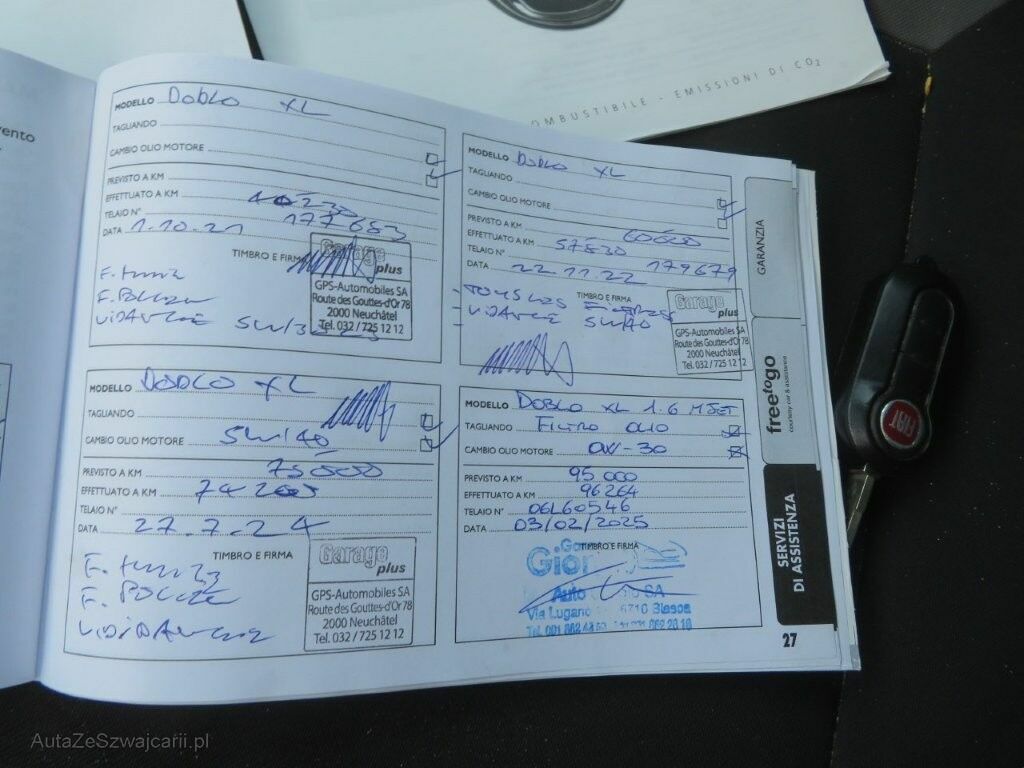 OMBUSTIBILE - EMISSIONI DI CO₂
vento
MODELLO DOBLO XL
TAGLIANDO
CAMBIO OLIO MOTORE
PREVISTO A KM
EFFETTUATO A KM
TELAIO N° 177683
DATA 1.10.21
TIMBRO E FIRMA
Garage
plus
GPS-Automobiles SA
Route des Gouttes-d'Or 78
2000 Neuchâtel
Tel. 032 / 725 12 12
MODELLO DOBLO XL
TAGLIANDO
CAMBIO OLIO MOTORE
PREVISTO A KM 60000
EFFETTUATO A KM 57830
TELAIO N° 179679
DATA 22.11.22
TIMBRO E FIRMA
5W/40
Garage
plus
GPS-Automobiles SA
Route des Gouttes-d'Or 78
2000 Neuchâtel
Tel. 032 / 725 12 12
MODELLO DOBLO XL
TAGLIANDO
CAMBIO OLIO MOTORE 5W/40
PREVISTO A KM 75000
EFFETTUATO A KM
TELAIO N°
DATA 27.7.24
TIMBRO E FIRMA
Garage
plus
GPS-Automobiles SA
Route des Gouttes-d'Or 78
2000 Neuchâtel
Tel. 032 / 725 12 12
MODELLO DOBLO XL 1.6 MJET
TAGLIANDO FILTRO OLIO
CAMBIO OLIO MOTORE 0W-30
PREVISTO A KM 95 000
EFFETTUATO A KM 96264
TELAIO N° 06L60546
DATA 03/02/2025
TIMBRO E FIRMA
Auto SA
Via Lugano 6710 Biasca
GARANZIA
freetogo
courtesy car & assistance
SERVIZI
DI ASSISTENZA
27
FIAT
AutaZeSzwajcarii.pl